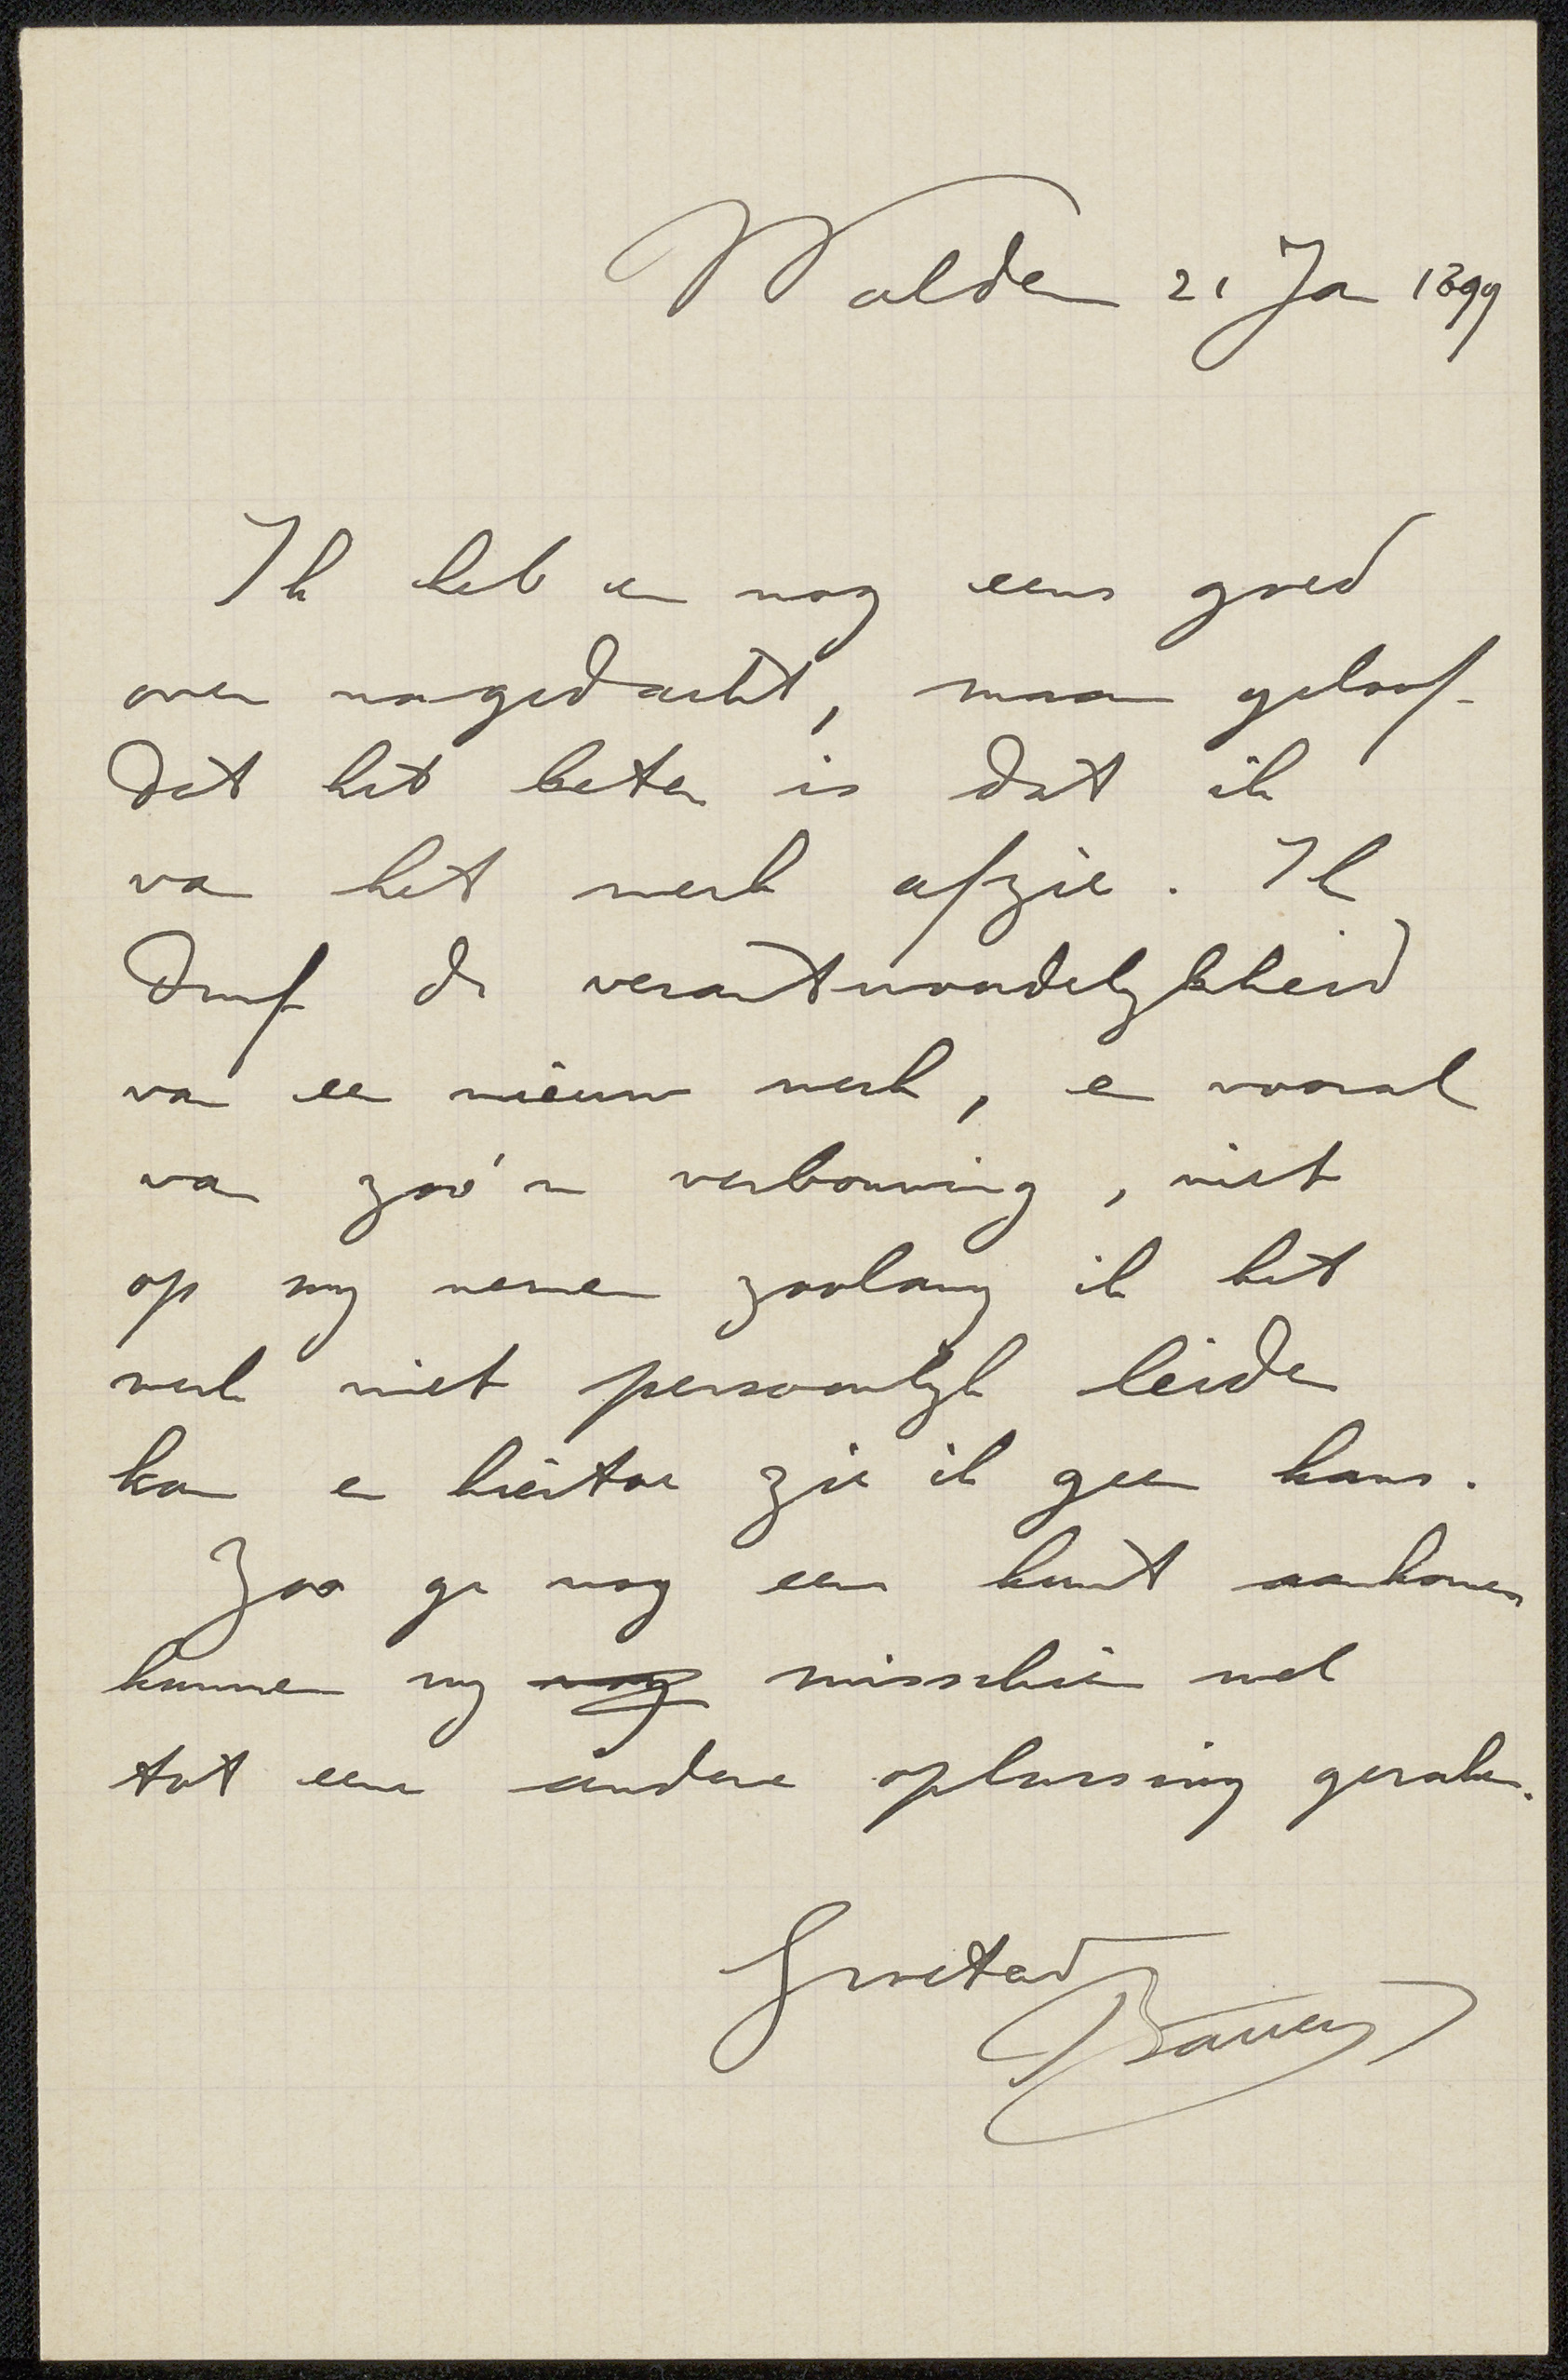 Walden 21 Jan 1899
Ik heb er nog eens goed
over nagedacht, maar geloof
dat het beter is dat ik
van het werk afzie. Ik
durf de verantwoordelykheid
van een nieuw werk, en vooral
van zoo'n verbouwing, niet
op my nemen zoolang ik het
werk niet persoonlyk leiden
kan en hiertoe zie ik geen kans.
Zoo ge nog eens kunt aankomen
kunnen wy nog misschien wel
tot een andere oplossing geraken.
Groetend
Bauer